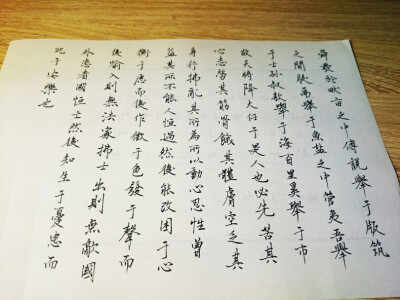 舜發於畎畝之中傅說舉于版筑
之間膠鬲舉于魚鹽之中管夷吾舉
于士孫叔敖舉于海百里奚舉于市
故天將降大任于是人也必先苦其
心志勞其筋骨餓其體膚空乏其
身行拂亂其所為所以動心忍性曾
益其所不能人恒過然後能改困于心
衡于慮而後作徵于色發于聲而
後喻入則無法家拂士出則無敵國
外患者國恒亡然後知生于憂患而
死于安樂也